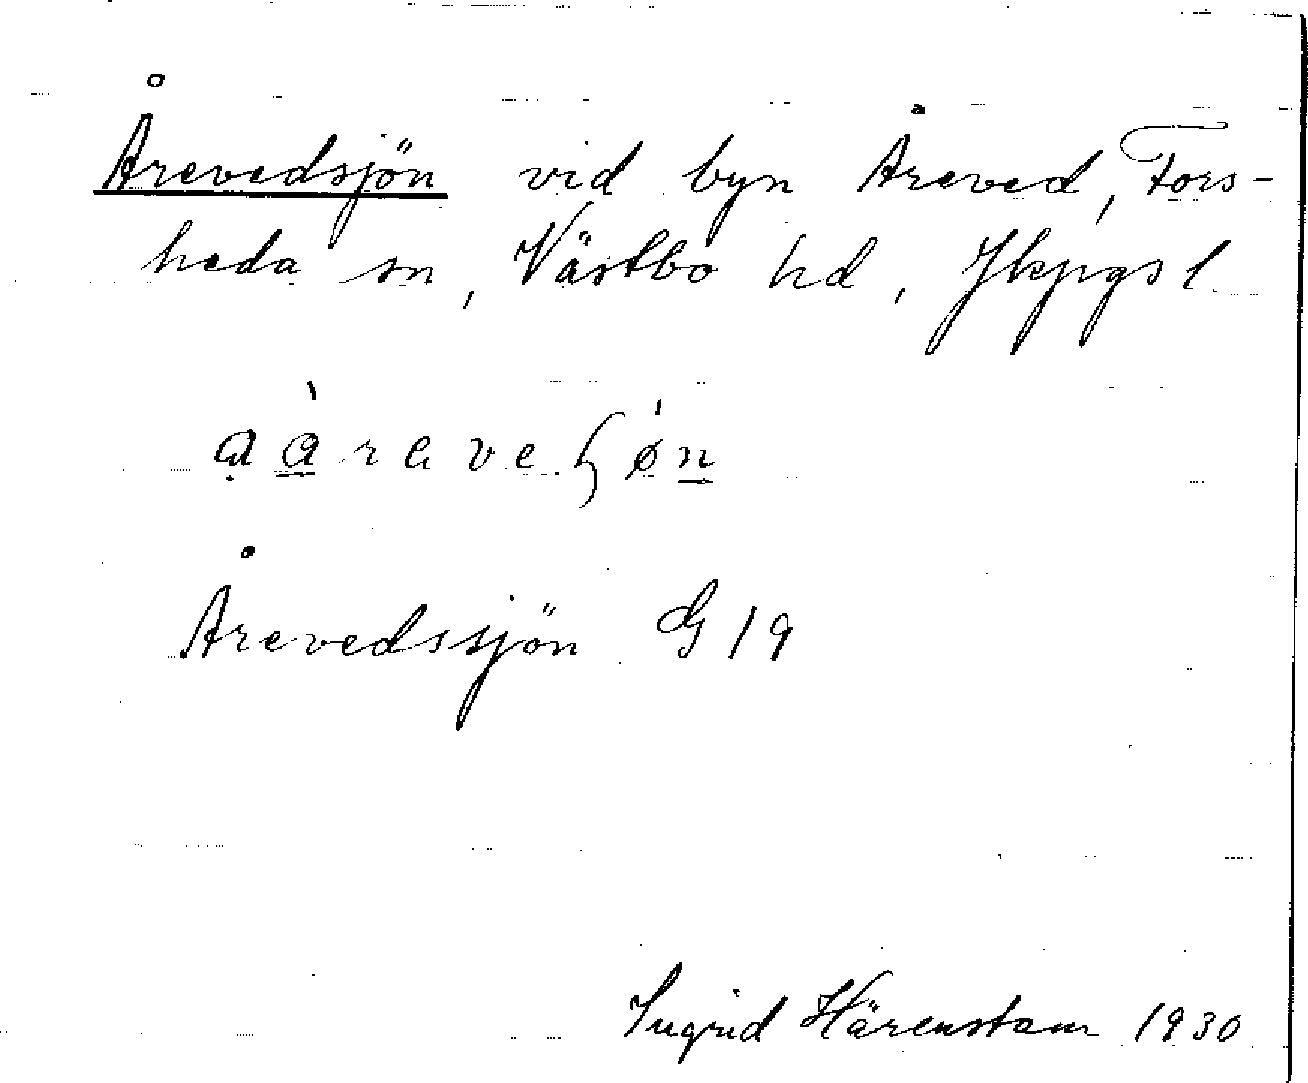 Årevedsjön vid byn Åreved, Fors-
heda sn, Västbo hd, Jkpgs l
Årevedssjön G 19
Ingrid Härenstam 1930